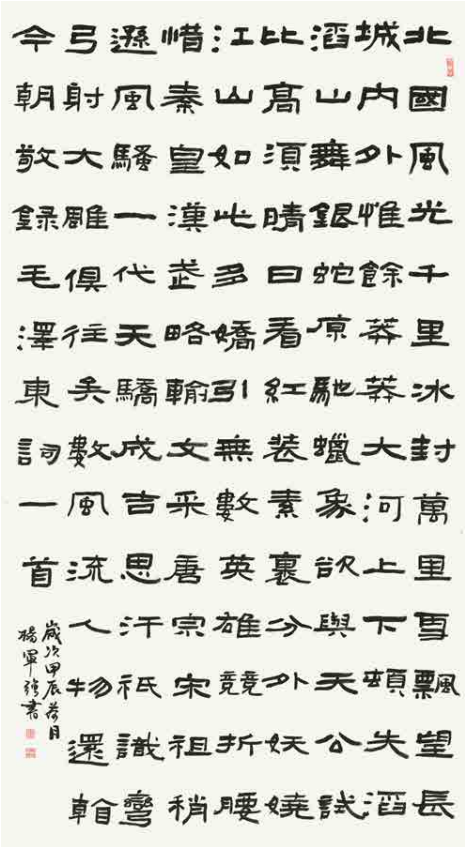 北國風光千里冰封萬里雪飄望長
城内外惟餘莽莽大河上下頓失滔
滔山舞銀蛇原馳蠟象欲與天公試
比高須晴日看紅装素裹分外妖嬈
江山如此多嬌引無數英雄競折腰
惜秦皇漢武略輸文采唐宗宋祖稍
遜風騷一代天驕成吉思汗祇識彎
弓射大雕俱往矣數風流人物還看
今朝敬録毛澤東詞一首
歲次甲辰荷月
楊軍強書